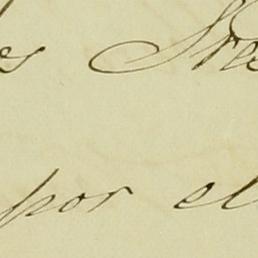 es Stes
por el